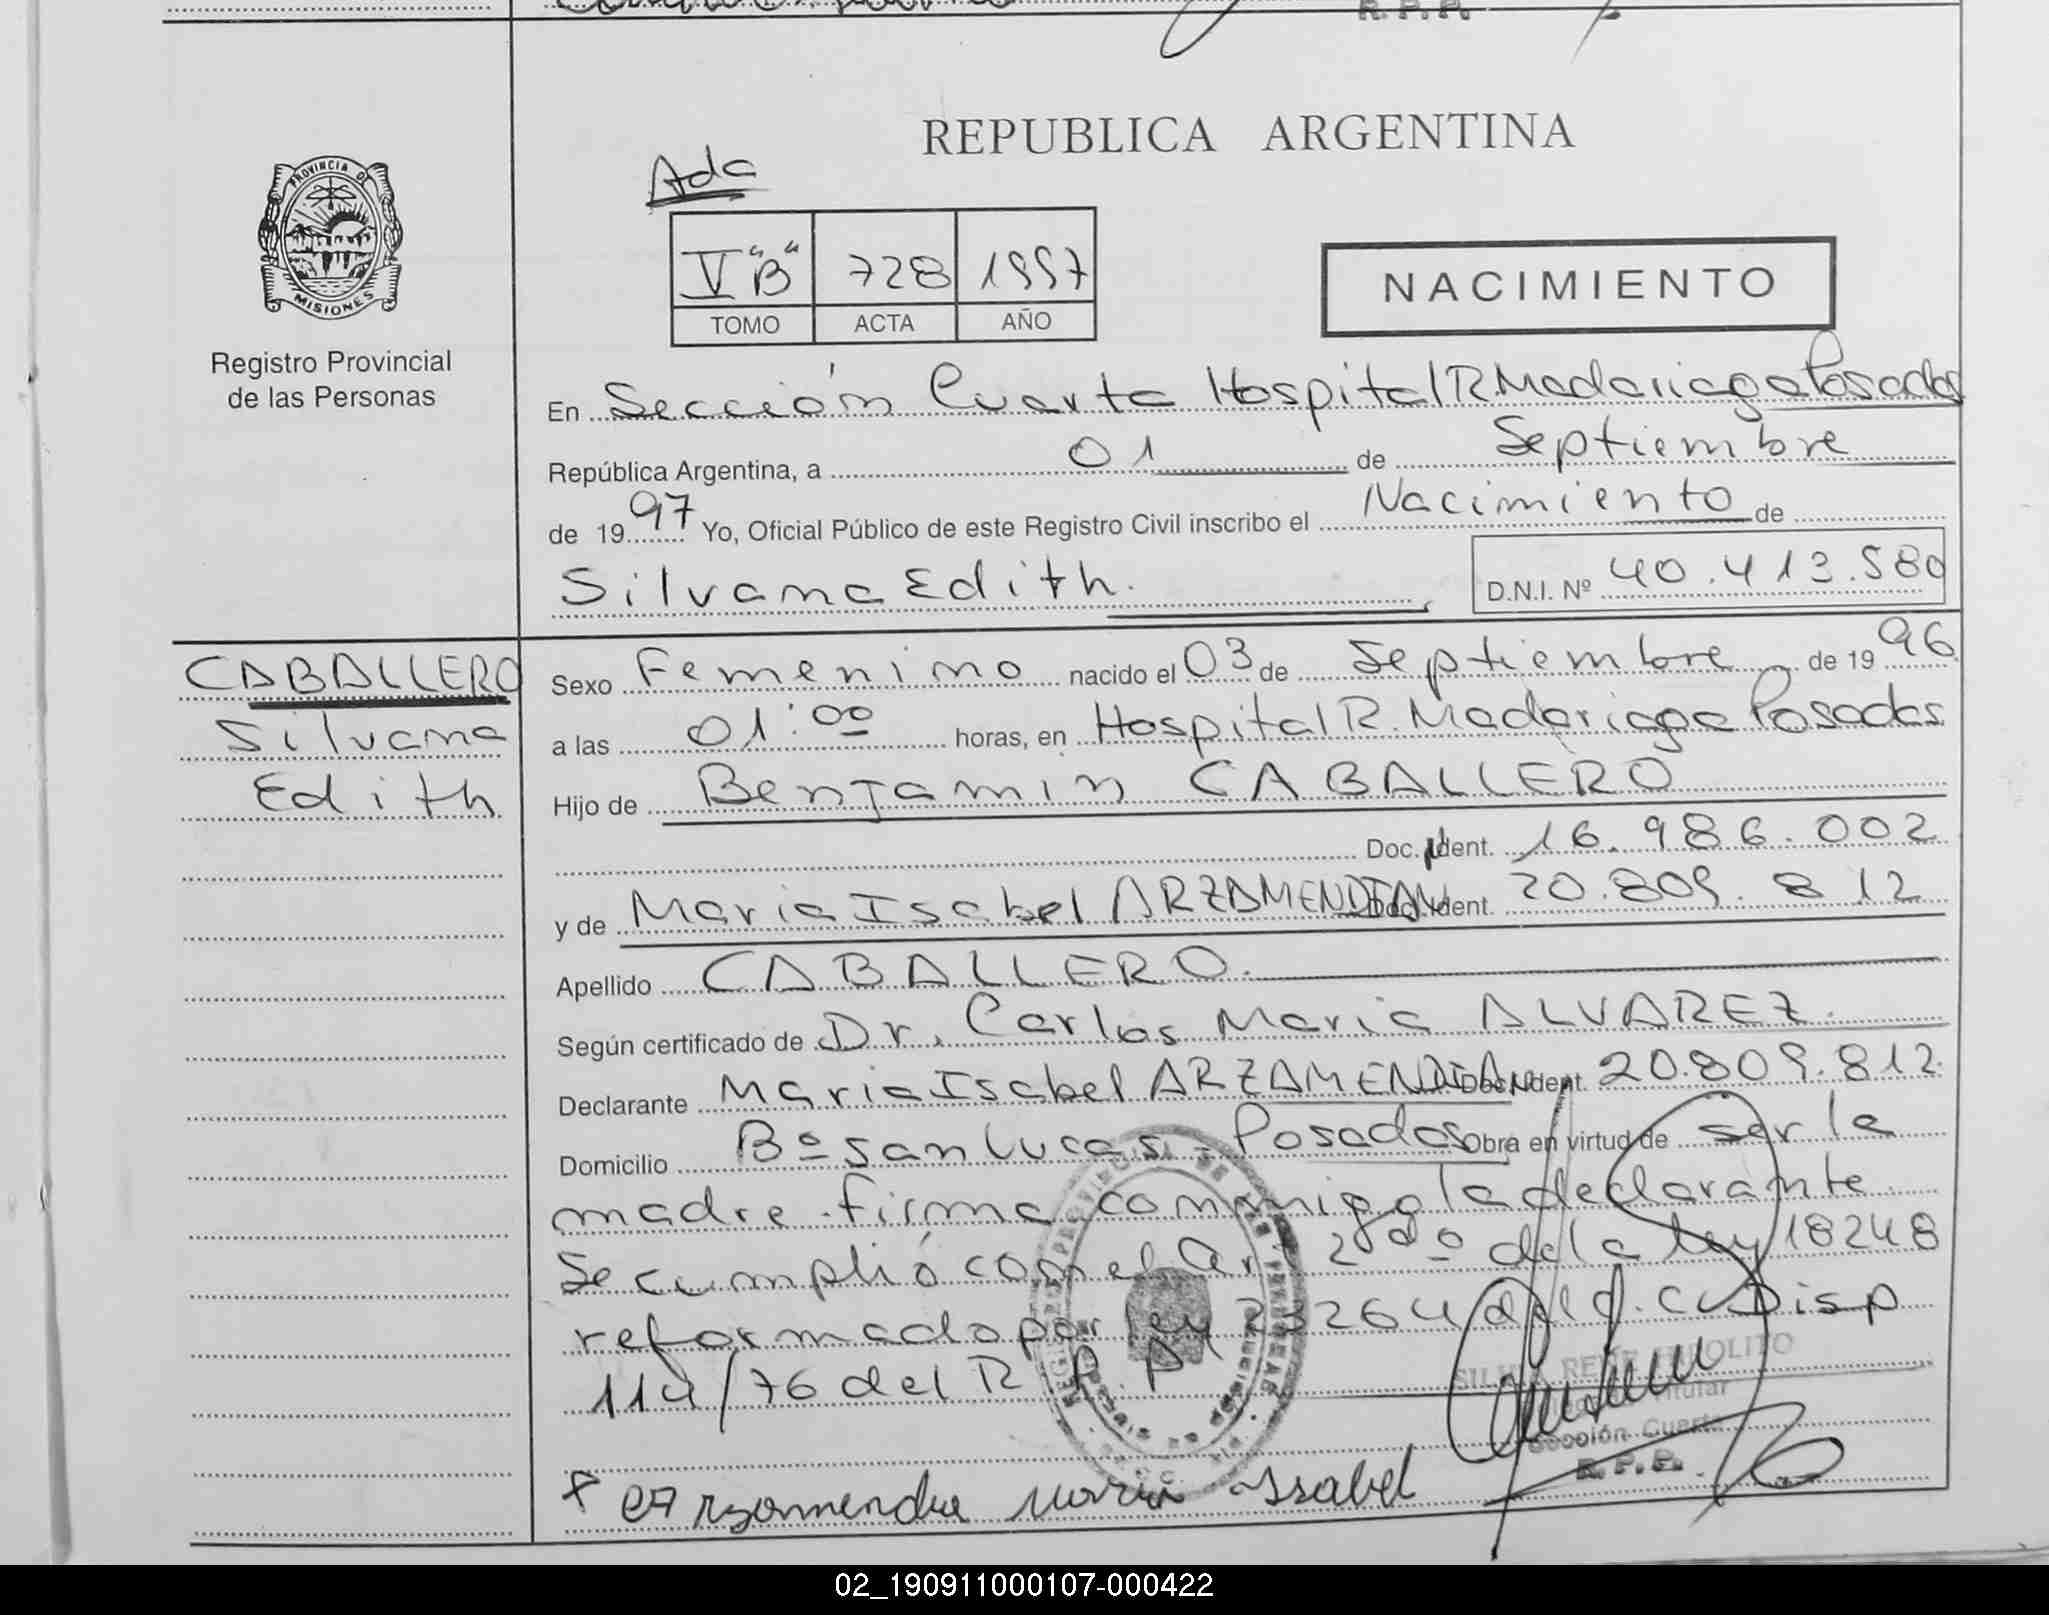 R. P. P.
REPUBLICA ARGENTINA
Ada
PROVINCIA DE
MISIONES
Registro Provincial
de las Personas
V "B" 728 1997
TOMO ACTA AÑO
NACIMIENTO
En Sección Cuarta Hospital R. Madariaga Posadas
República Argentina, a 01 de Septiembre
de 1997 Yo, Oficial Público de este Registro Civil inscribo el Nacimiento de
Silvana Edith.
D.N.I. Nº 40.413.580
CABALLERO
Silvana
Edith
Sexo Femenino nacido el 03 de Septiembre de 1996
a las 01:00 horas, en Hospital R. Madariaga Posadas
Hijo de Benjamin CABALLERO
Doc. Ident. 16.986.002
y de Maria Isabel ARZAMENDIA Doc. Ident. 20.809.812
Apellido CABALLERO.
Según certificado de Dr. Carlos Maria ALVAREZ.
Declarante Maria Isabel ARZAMENDIA Doc. Ident. 20.809.812
Domicilio Bº San Lucas - Posadas Obra en virtud de ser la
madre. firma conmigo la declarante
Se cumplió con el Art 2do de la Ley 18248
reformado por Ley 23264 del C. C. Disp
114/76 del R. P. P
SILVA RENE HIPOLITO
Titular
Sección Cuarta
R. P. P.
Arzamendia Maria Isabel
02_190911000107-000422